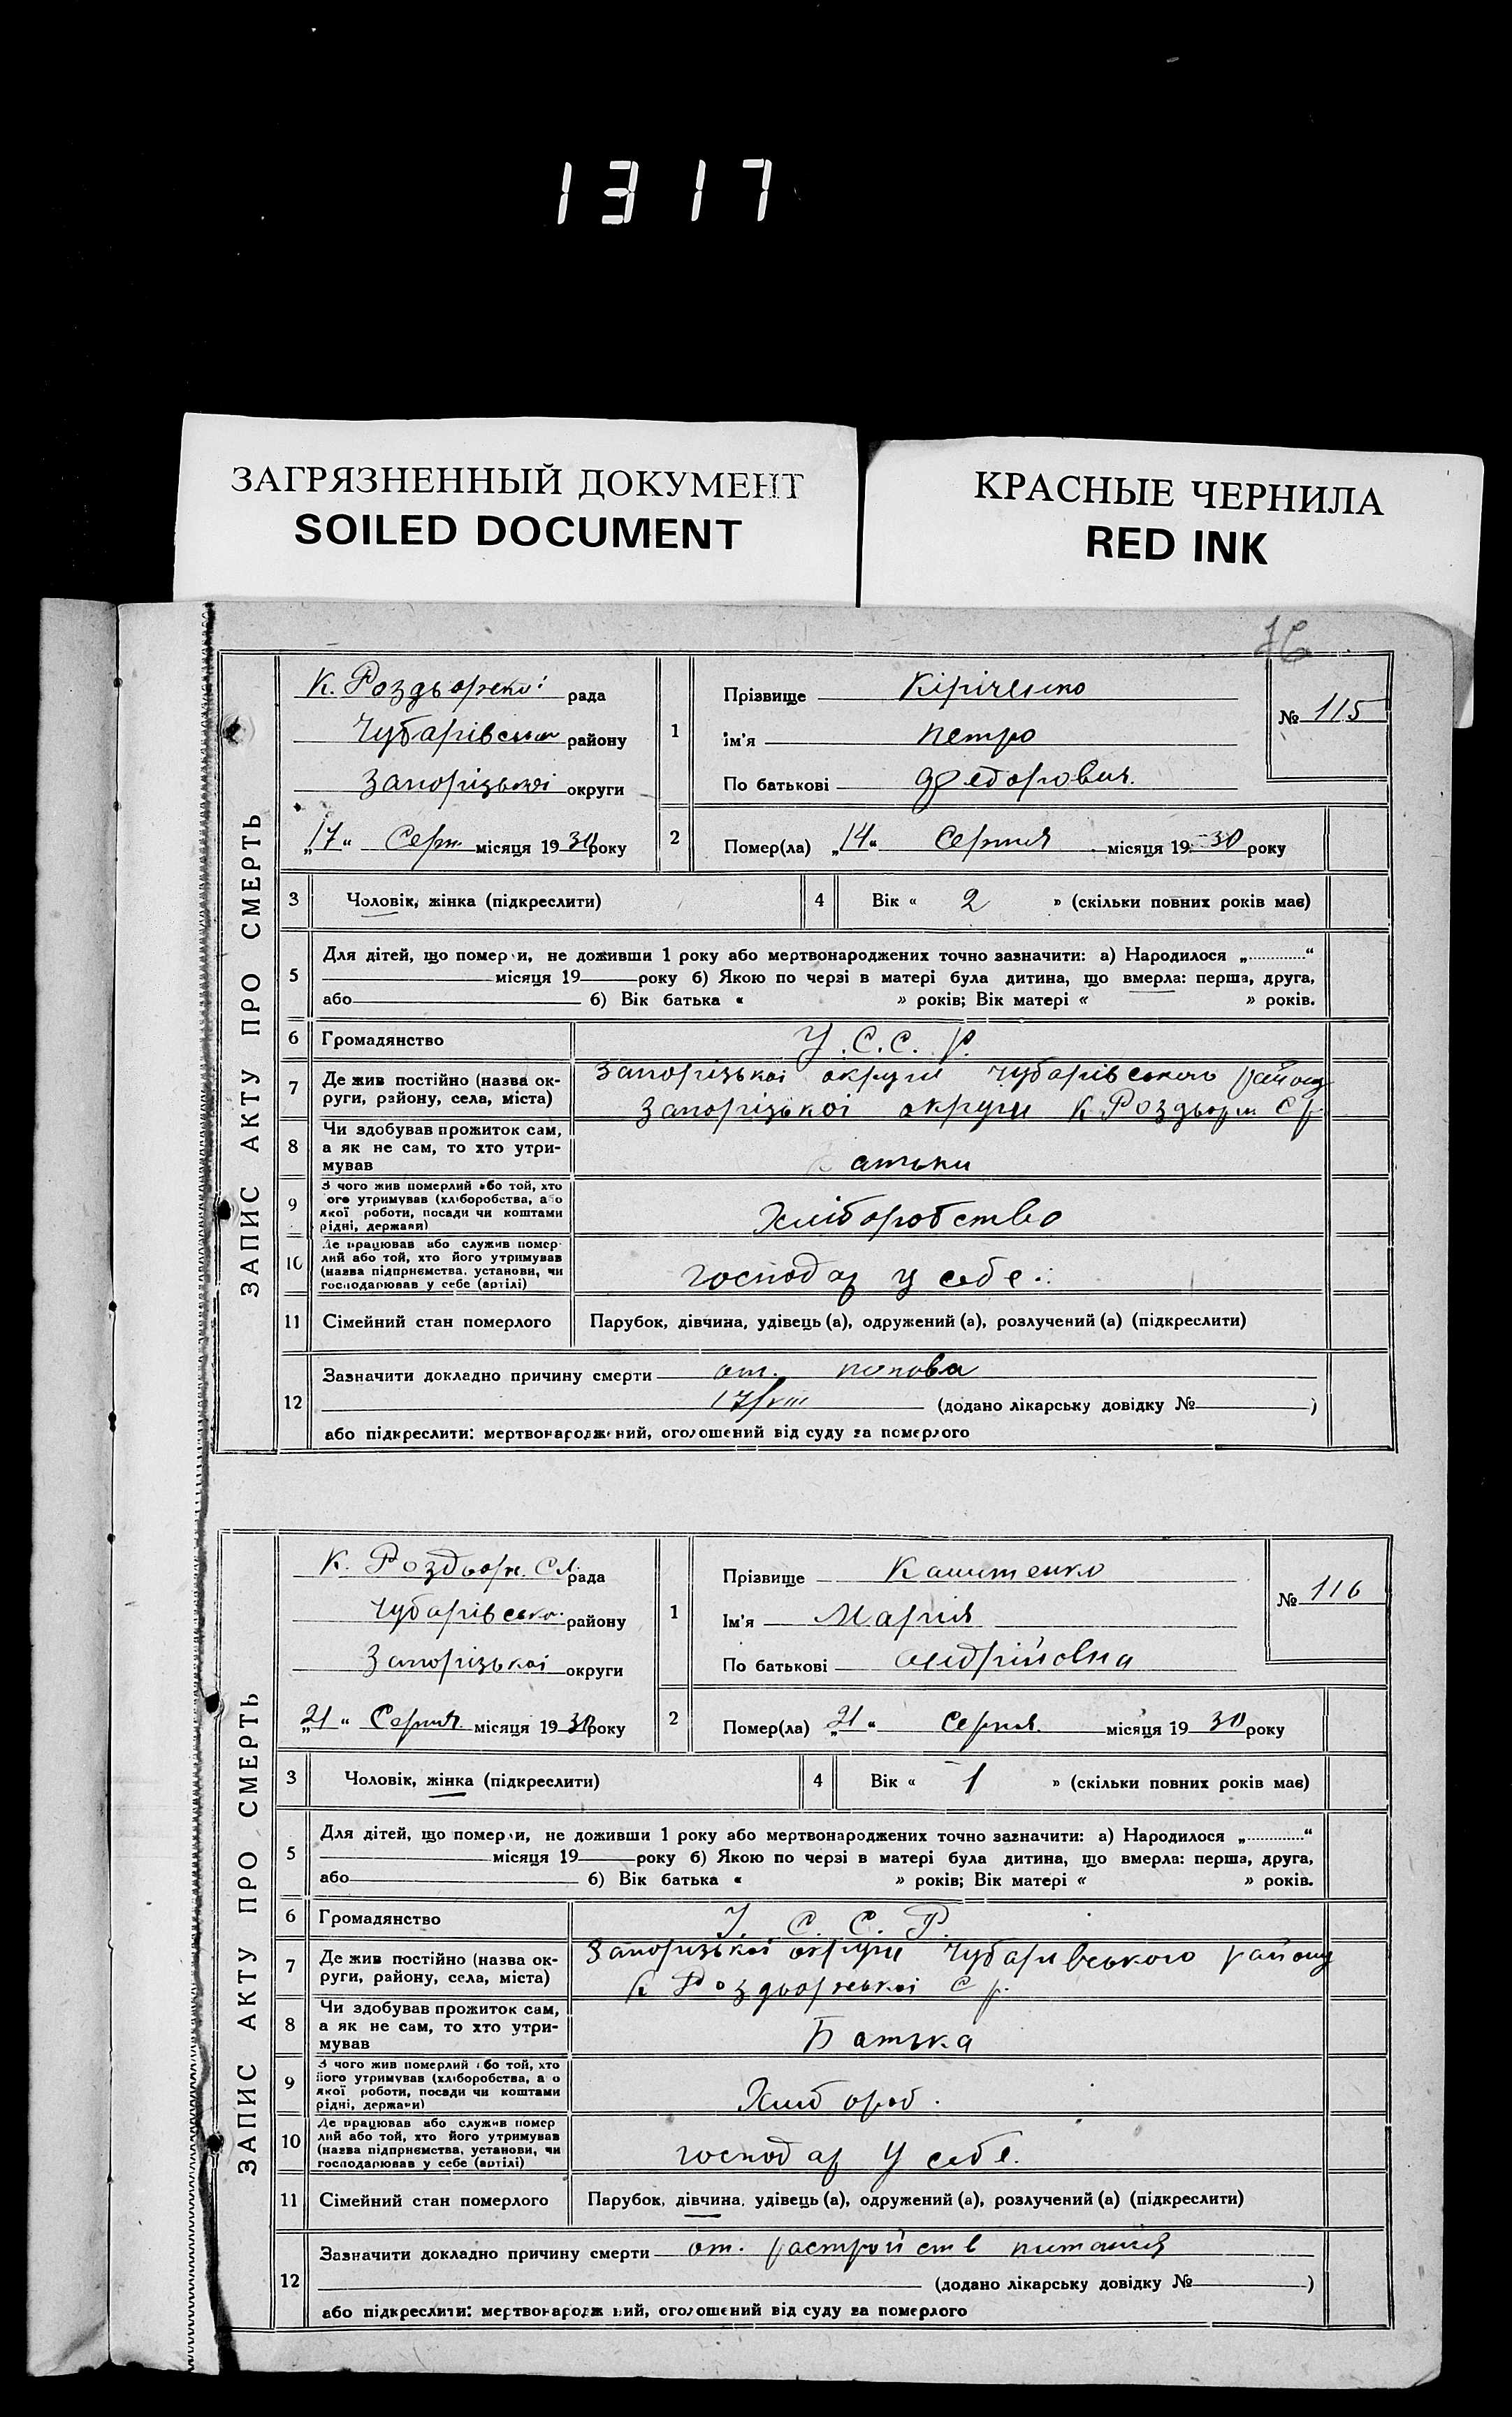 1317
ЗАГРЯЗНЕННЫЙ ДОКУМЕНТ
SOILED DOCUMENT
КРАСНЫЕ ЧЕРНИЛА
RED INK
ЗАПИС АКТУ ПРО СМЕРТЬ
К. рада
Чубарівськ району
Запорізької округи
„17“ Серп. місяця 1930 року
1
Прізвище Кіріченко
Ім'я Петро
По батькові Федорович.
№ 115
2 Помер(ла) „14“ Серпня місяця 19 30 року
3 Чоловік, жінка (підкреслити)
4 Вік « 2 » (скільки повних років має)
5 Для дітей, що померли, не доживши 1 року або мертвонароджених точно зазначити: а) Народилося „............“
місяця 19 року б) Якою по черзі в матері була дитина, що вмерла: перша, друга,
або б) Вік батька « » років; Вік матері « » років.
6 Громадянство У.С.С.Р.
7 Де жив постійно (назва ок-
руги, району, села, міста)
Запорізькоі округи Чубарівського району
Запорізькоі округи К Роздорн С р
8 Чи здобував прожиток сам,
а як не сам, то хто утри-
мував
атьки
9 З чого жив померлий або той, хто
ого утримував (хліборобства, або
якої роботи, посади чи коштами
рідні, держави)
Хліборобство
10 Де працював або служив помер-
лий або той, хто його утримував
(назва підприємства, установи, чи
господарював у себе (артілі)
господар у себе.
11 Сімейний стан померлого Парубок, дівчина, удівець (а), одружений (а), розлучений (а) (підкреслити)
12 Зазначити докладно причину смерти от. поноса
17/VIII (додано лікарську довідку № )
або підкреслити: мертвонароджений, оголошений від суду за померлого
ЗАПИС АКТУ ПРО СМЕРТЬ
К. рада
Чубарівсько району
Запорізькоі округи
„21“ Серпня місяця 1930 року
1
Прізвище
Ім'я Марія
По батькові Андрійовна
№ 116
2 Помер(ла) „21“ Серпня. місяця 19 30 року
3 Чоловік, жінка (підкреслити)
4 Вік « 1 » (скільки повних років має)
5 Для дітей, що померли, не доживши 1 року або мертвонароджених точно зазначити: а) Народилося „............“
місяця 19 року б) Якою по черзі в матері була дитина, що вмерла: перша, друга,
або б) Вік батька « » років; Вік матері « » років.
6 Громадянство У. С. С. Р.
7 Де жив постійно (назва ок-
руги, району, села, міста)
Запорізькоі округи Чубарівського району
К С р.
8 Чи здобував прожиток сам,
а як не сам, то хто утри-
мував
Батька
9 З чого жив померлий або той, хто
його утримував (хліборобства, або
якої роботи, посади чи коштами
рідні, держави)
Хлібороб.
10 Де працював або служив помер
лий або той, хто його утримував
(назва підприємства, установи, чи
господарював у себе (артілі)
господар у себе.
11 Сімейний стан померлого Парубок, дівчина, удівець (а), одружений (а), розлучений (а) (підкреслити)
12 Зазначити докладно причину смерти от. растройств питания
(додано лікарську довідку № )
або підкреслити: мертвонародж ний, оголошений від суду за померлого